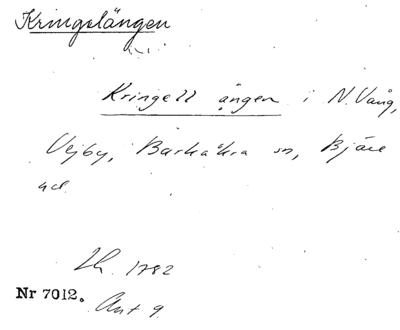 Kringelängen
Kringell ängen i N. Vång,
Vejby, Barkåkra sn, Bjäre
hd
Lh. 1782
Nr 7012.
Akt 9.